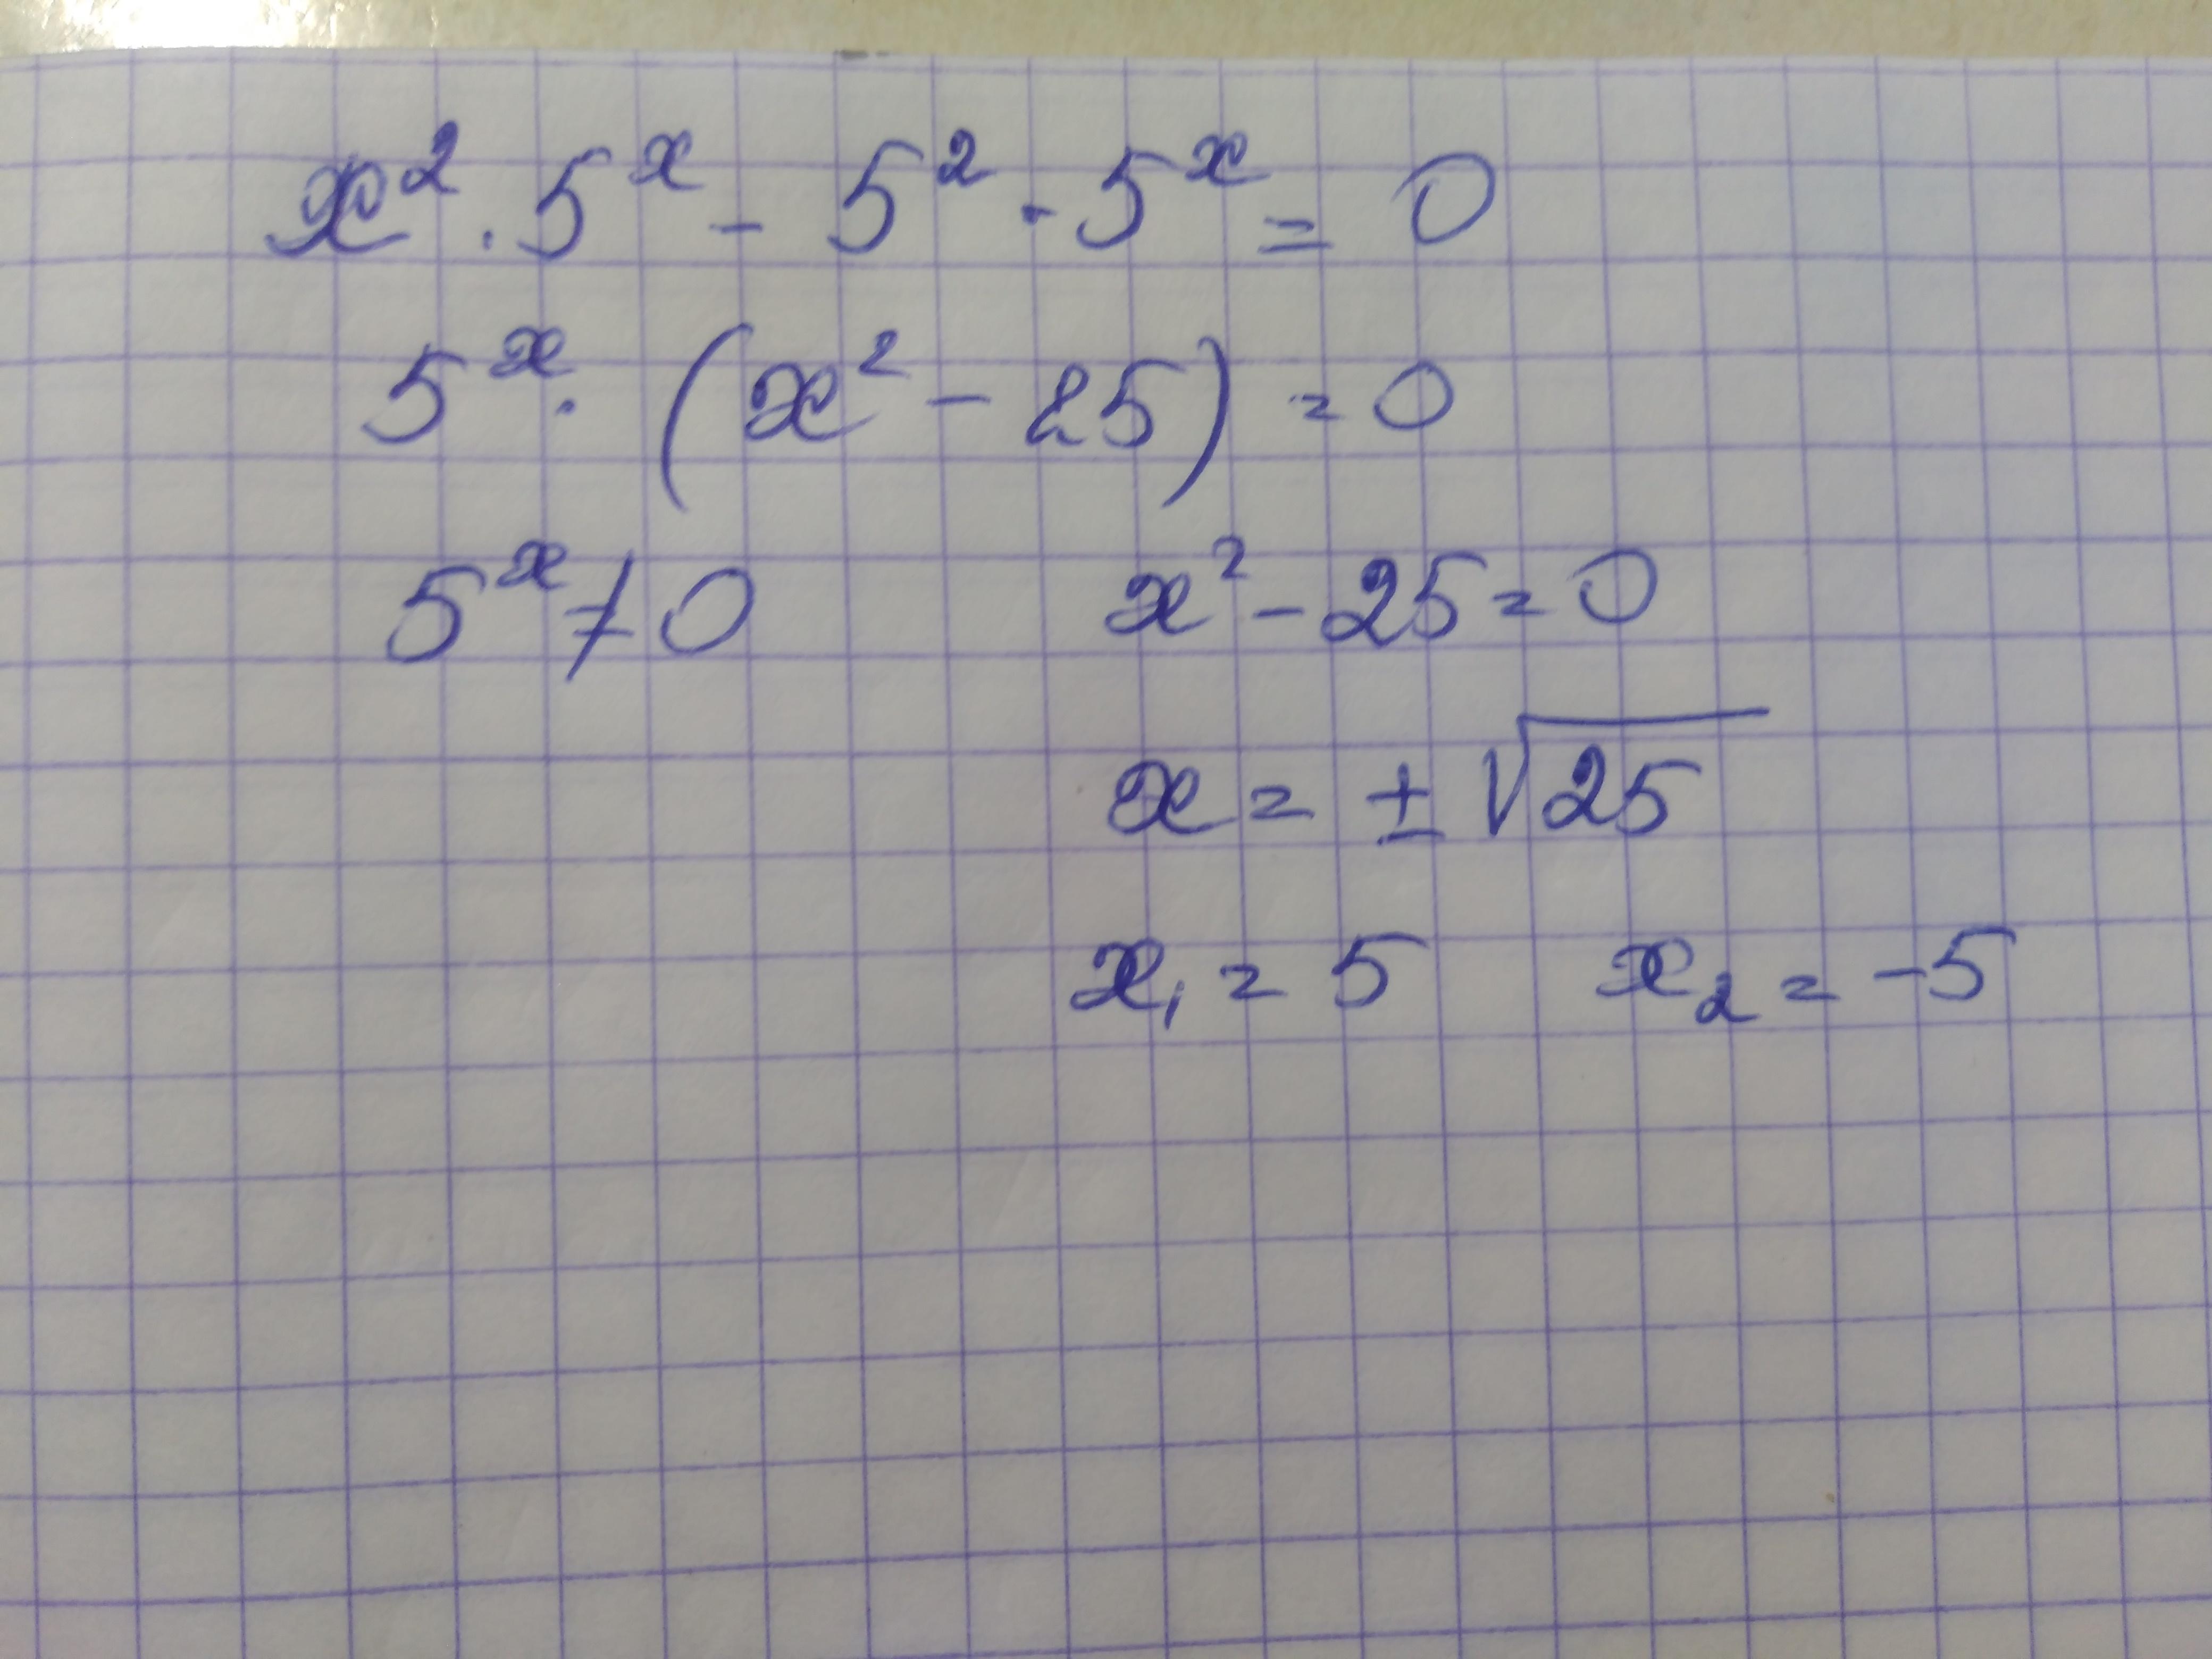 x² · 5ˣ - 5² · 5ˣ = 0
5ˣ · (x² - 25) = 0
5ˣ ≠ 0 x² - 25 = 0
x = ± √25
x₁ = 5 x₂ = -5